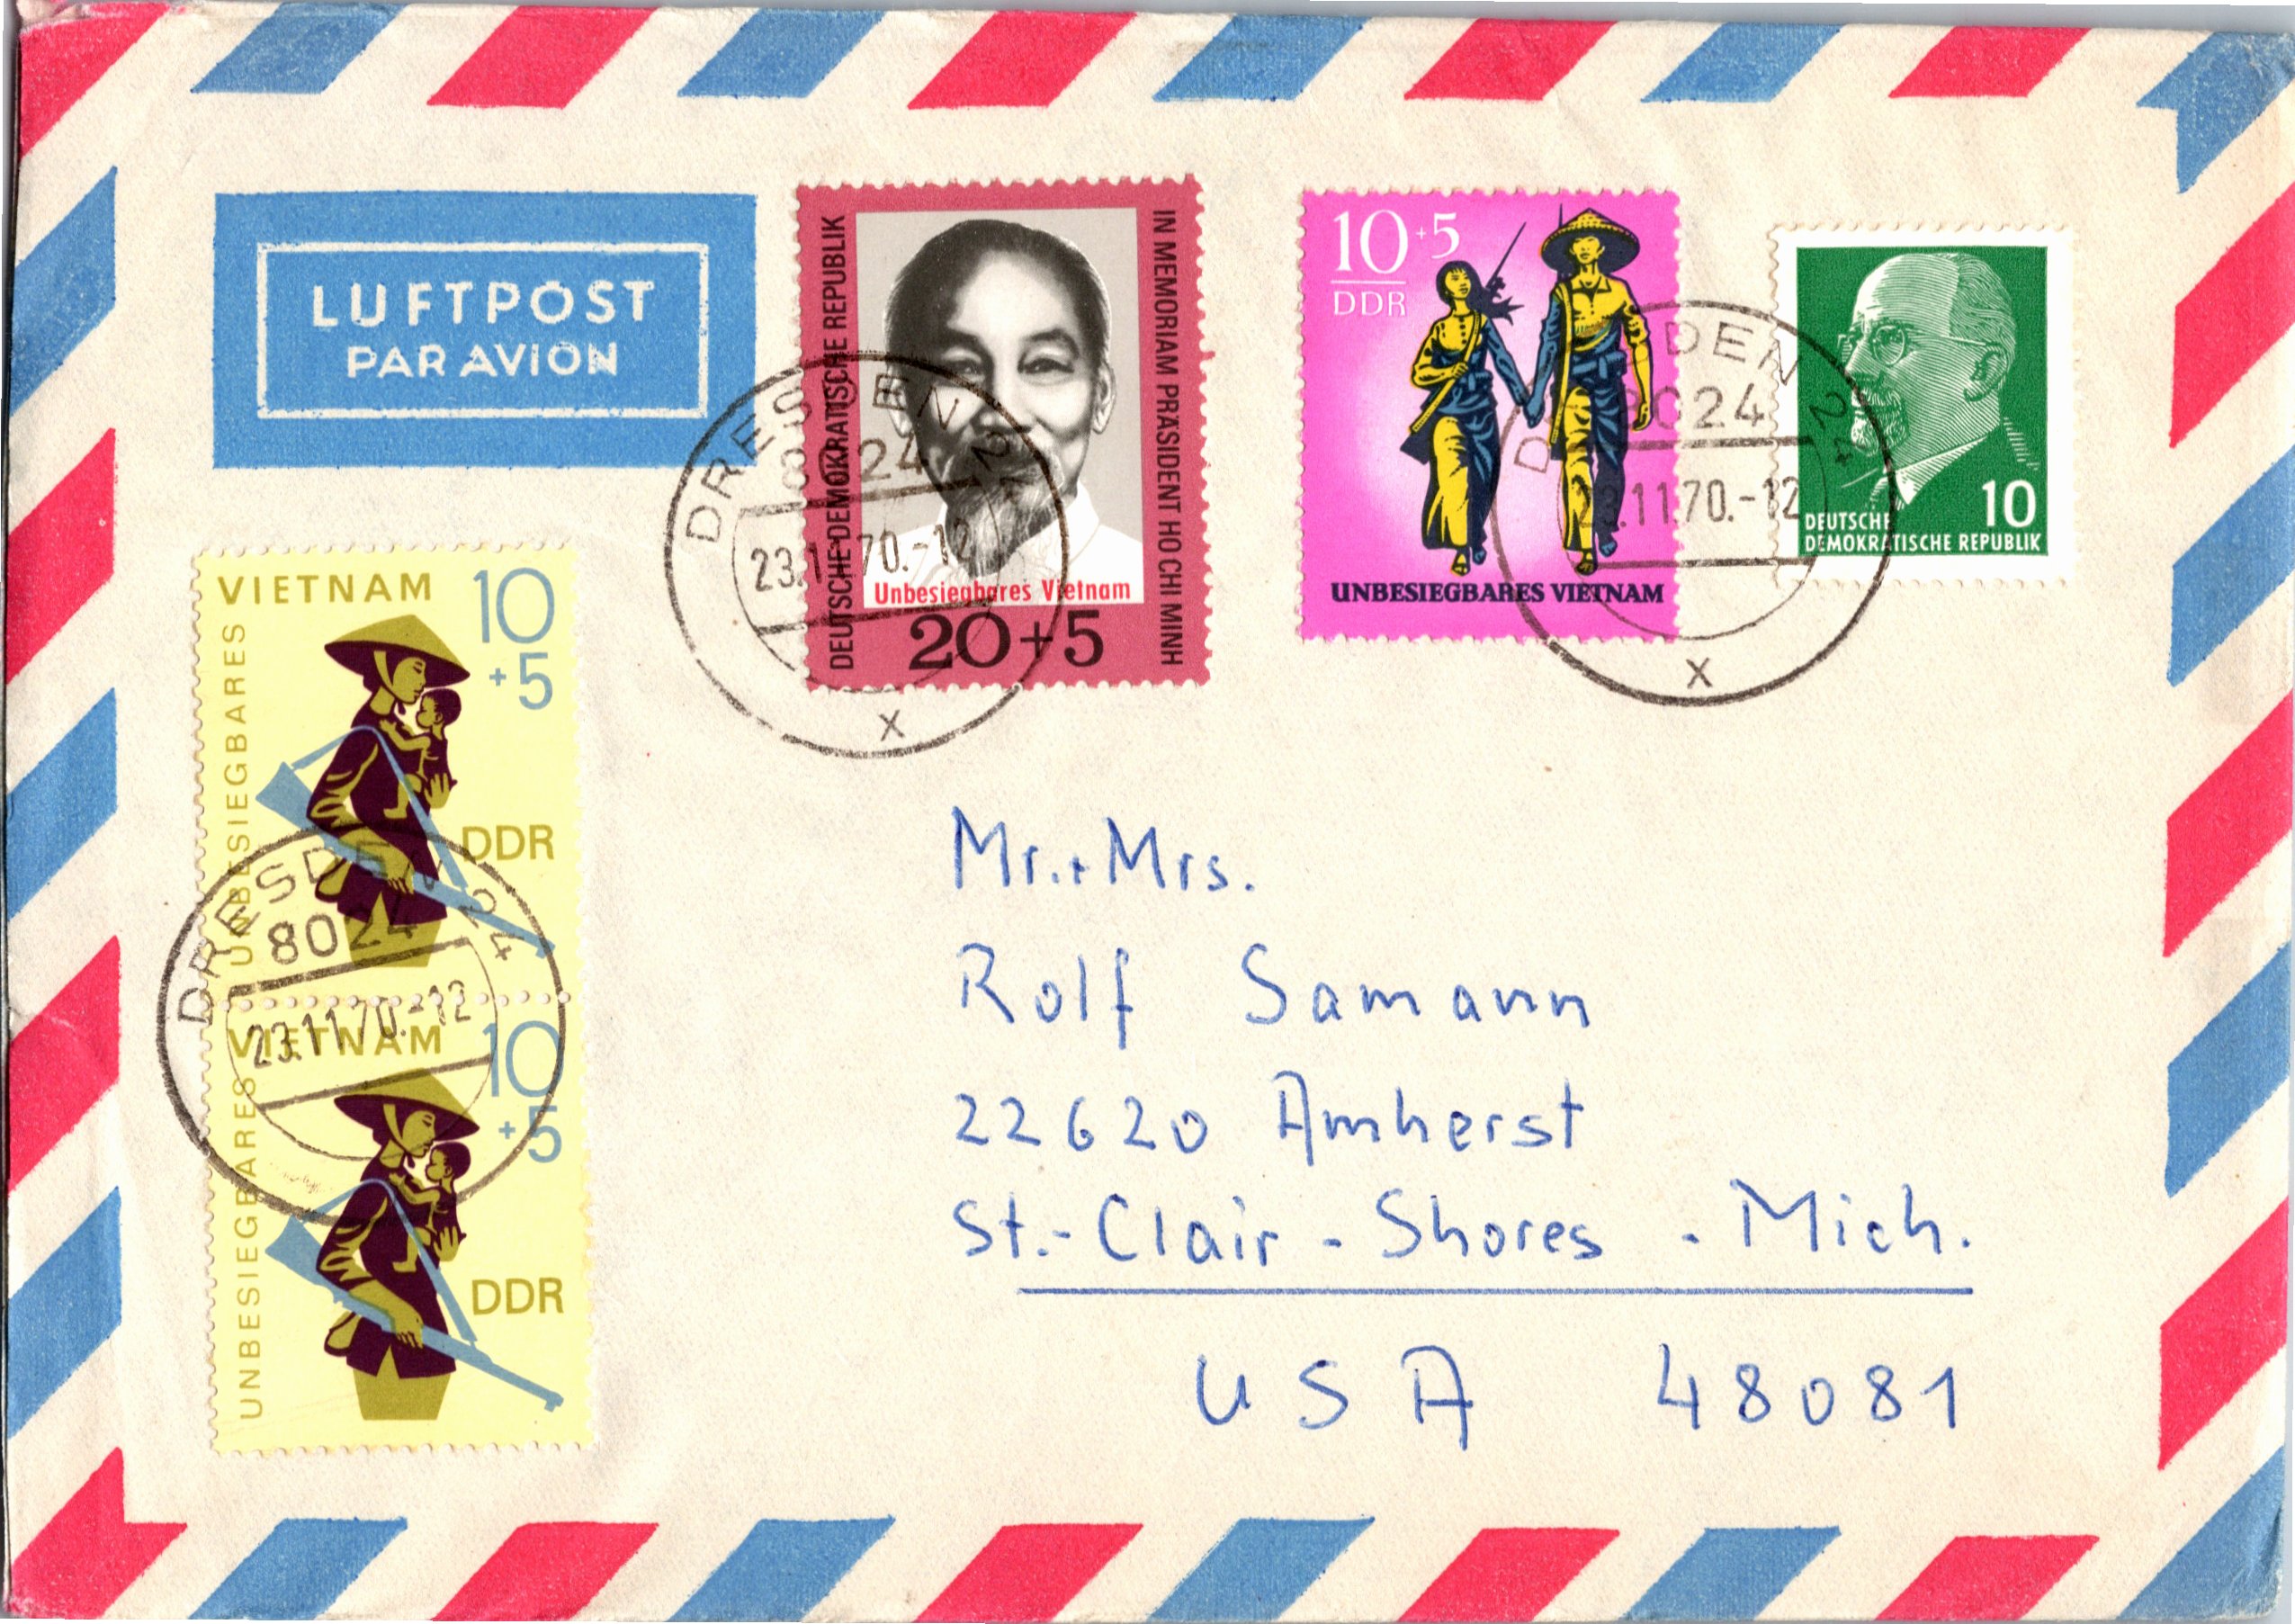 LUFTPOST
PAR AVION
DEUTSCHE DEMOKRATISCHE REPUBLIK
IN MEMORIAM PRÄSIDENT HO CHI MINH
Unbesiegbares Vietnam
20+5
DRESDEN 24
8024
23.11.70.-12
x
10+5
DDR
UNBESIEGBARES VIETNAM
DRESDEN 24
8024
23.11.70.-12
x
10
DEUTSCHE
DEMOKRATISCHE REPUBLIK
UNBESIEGBARES
VIETNAM
10
+5
DDR
DRESDEN 24
8024
23.11.70.-12
UNBESIEGBARES
VIETNAM
10
+5
DDR
Mr.+Mrs.
Rolf Samann
22620 Amherst
St.-Clair-Shores - Mich.
USA 48081